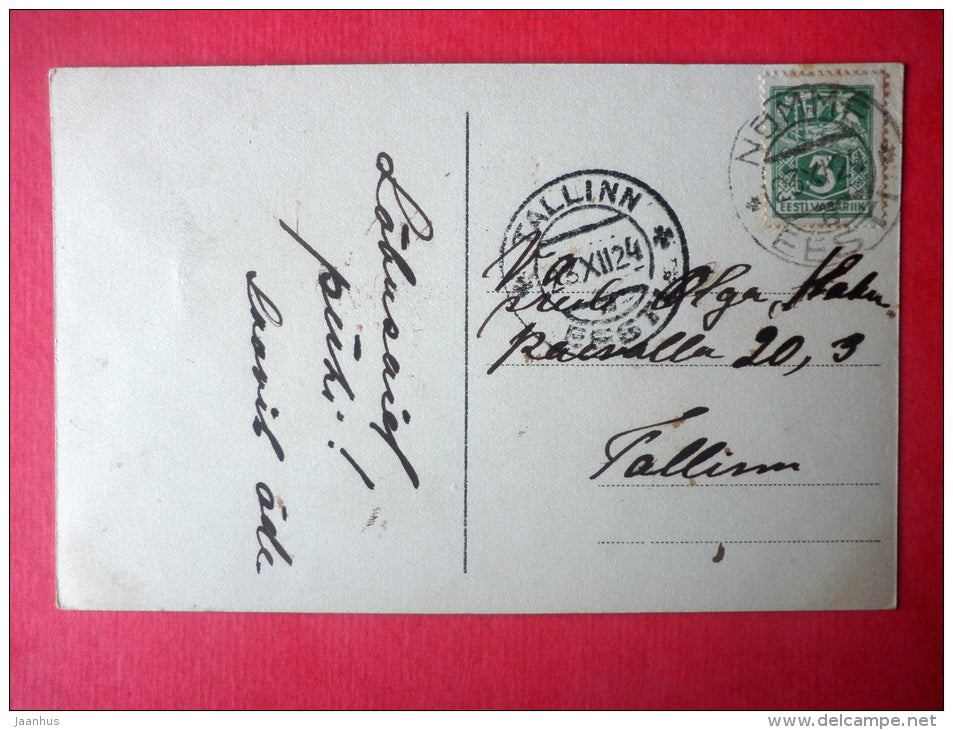 Lõbusaid
pühi!
soovib õde
NÕMME
EESTI
3
EESTI VABARIIK
TALLINN
XII 24
EESTI
Va
preili Olga
20, 3
Tallinn
Jaanhus
www.delcampe.net